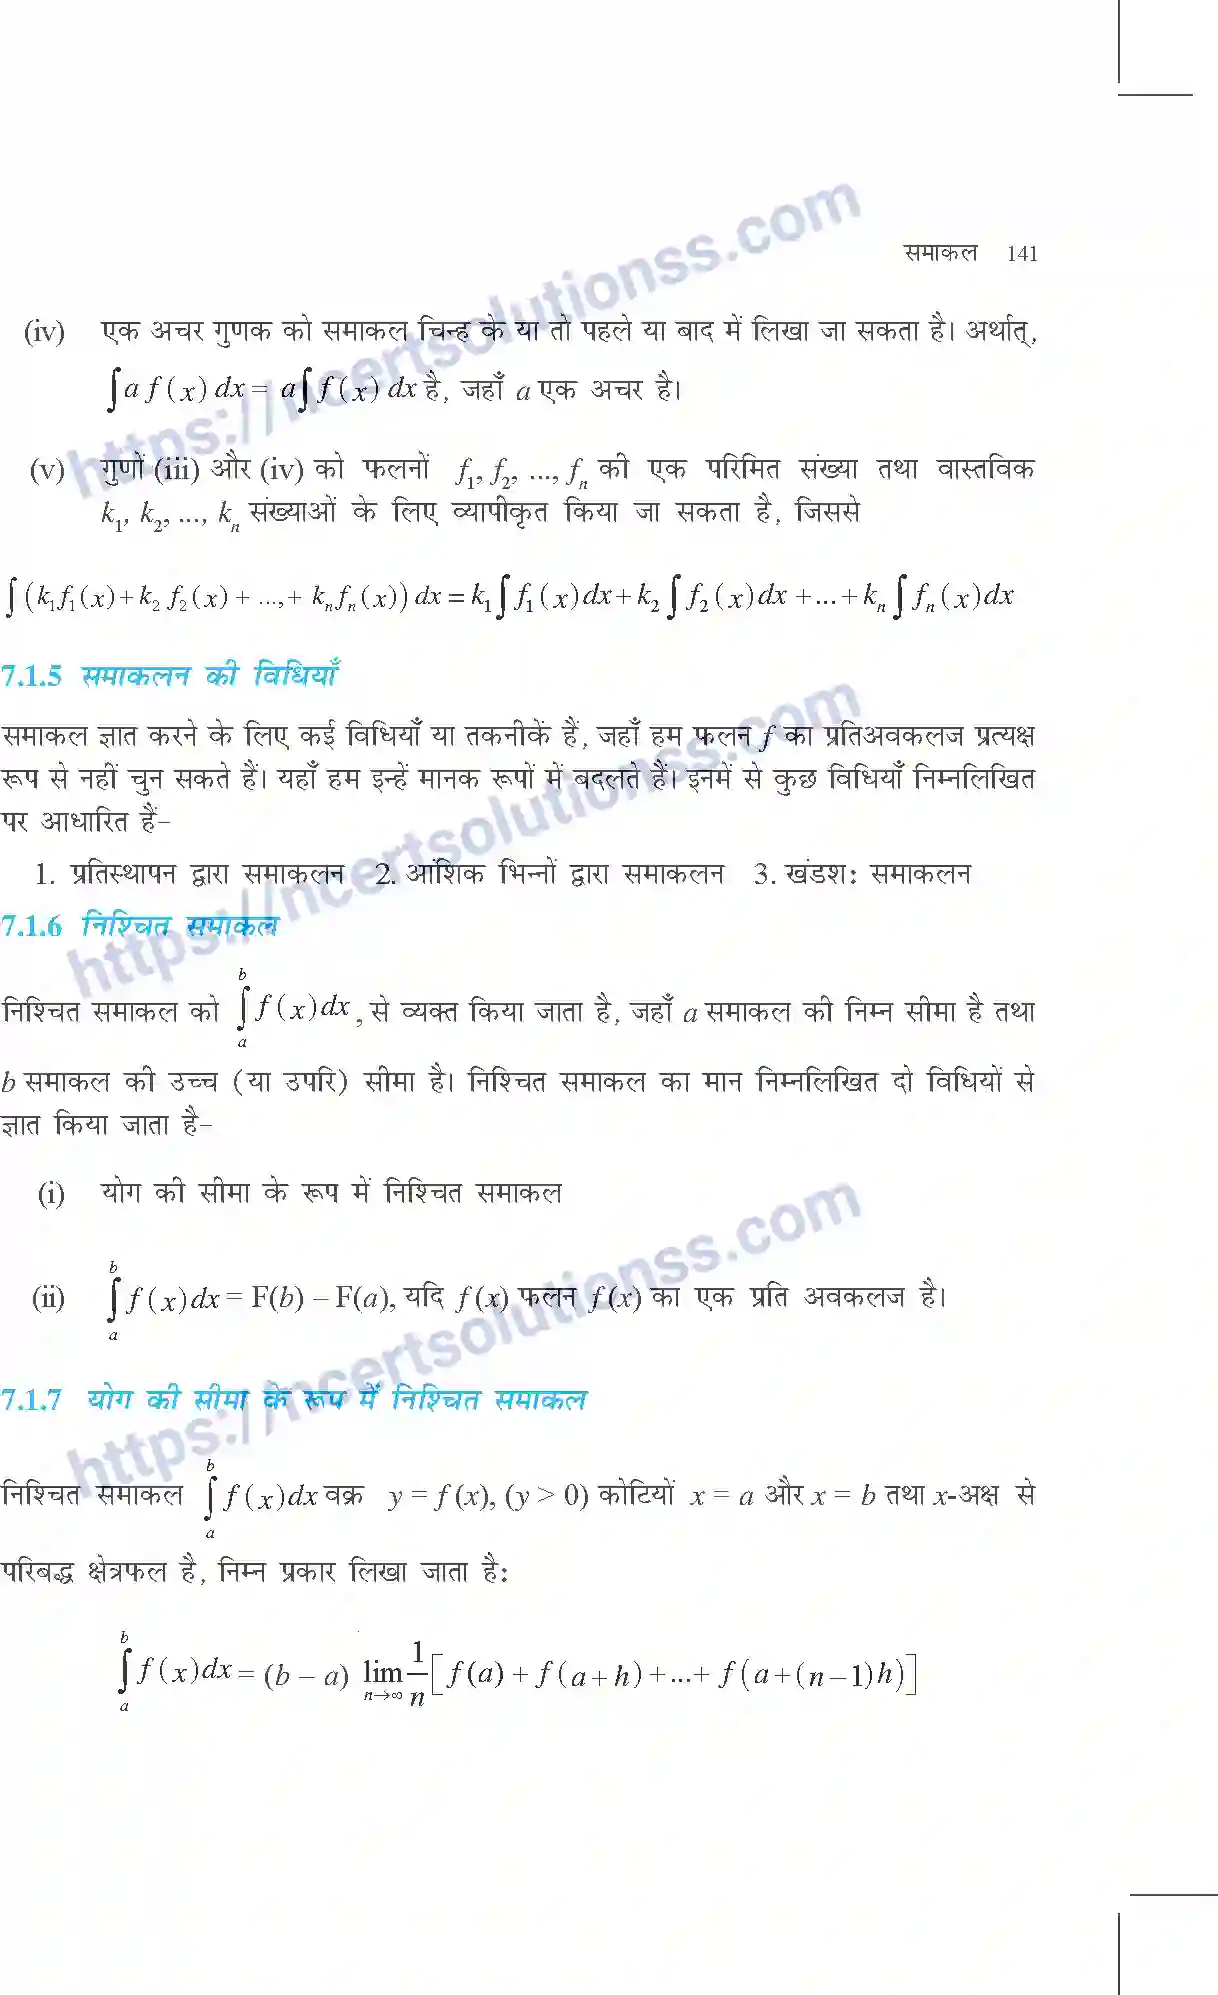 समाकल 141
(iv) एक अचर गुणक को समाकल चिन्ह के या तो पहले या बाद में लिखा जा सकता है। अर्थात्,
∫a f(x) dx = a∫f(x) dx है, जहाँ a एक अचर है।
(v) गुणों (iii) और (iv) को फलनों f₁, f₂, ..., fₙ की एक परिमित संख्या तथा वास्तविक
k₁, k₂, ..., kₙ संख्याओं के लिए व्यापीकृत किया जा सकता है, जिससे
∫(k₁f₁(x) + k₂ f₂(x) + ...,+ kₙfₙ(x)) dx = k₁∫f₁(x)dx + k₂∫f₂(x)dx + ... + kₙ∫fₙ(x)dx
7.1.5 समाकलन की विधियाँ
समाकल ज्ञात करने के लिए कई विधियाँ या तकनीकें हैं, जहाँ हम फलन f का प्रतिअवकलज प्रत्यक्ष
रूप से नहीं चुन सकते हैं। यहाँ हम इन्हें मानक रूपों में बदलते हैं। इनमें से कुछ विधियाँ निम्नलिखित
पर आधारित हैं–
1. प्रतिस्थापन द्वारा समाकलन 2. आंशिक भिन्नों द्वारा समाकलन 3. खंडशः समाकलन
7.1.6 निश्चित समाकल
निश्चित समाकल को ∫ₐᵇ f(x)dx, से व्यक्त किया जाता है, जहाँ a समाकल की निम्न सीमा है तथा
b समाकल की उच्च (या उपरि) सीमा है। निश्चित समाकल का मान निम्नलिखित दो विधियों से
ज्ञात किया जाता है–
(i) योग की सीमा के रूप में निश्चित समाकल
(ii) ∫ₐᵇ f(x)dx = F(b) – F(a), यदि f(x) फलन f(x) का एक प्रति अवकलज है।
7.1.7 योग की सीमा के रूप में निश्चित समाकल
निश्चित समाकल ∫ₐᵇ f(x)dx वक्र y = f(x), (y > 0) कोटियों x = a और x = b तथा x-अक्ष से
परिबद्ध क्षेत्रफल है, निम्न प्रकार लिखा जाता है:
∫ₐᵇ f(x)dx = (b – a) lim n→∞ 1/n [f(a) + f(a+h) + ... + f(a+(n–1)h)]
https://ncertsolutionss.com
https://ncertsolutionss.com
https://ncertsolutionss.com